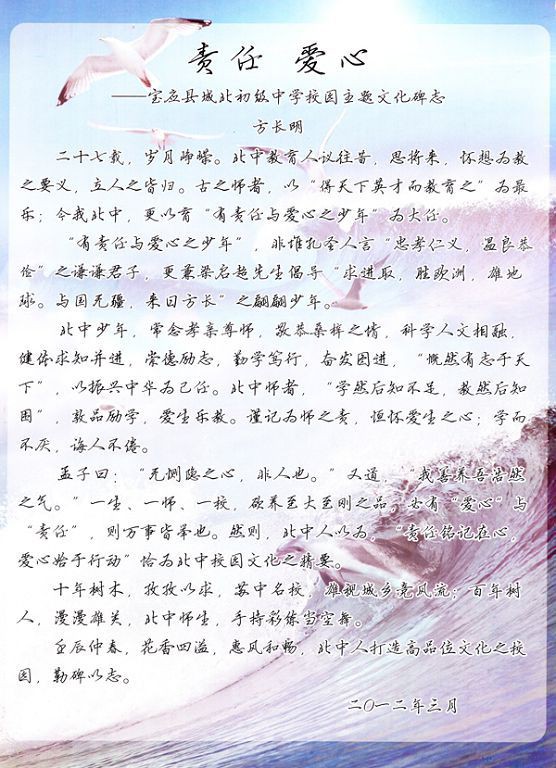 责任 爱心
——宝应县城北初级中学校园主题文化碑志
方长明
二十七载，岁月峥嵘。北中教育人议往昔，思将来，怀想为教
之要义，立人之皆归。古之师者，以“得天下英才而教育之”为最
乐；今我北中，更以育“有责任与爱心之少年”为大任。
“有责任与爱心之少年”，非惟孔圣人言“忠孝仁义，温良恭
俭”之谦谦君子，更秉梁启超先生倡导“求进取，胜欧洲，雄地
球。与国无疆，来日方长”之翩翩少年。
北中少年，常念孝亲尊师，敬恭桑梓之情，科学人文相融，
健体求知并进，崇德励志，勤学笃行，奋发图进，“慨然有志于天
下”，以振兴中华为己任。北中师者，“学然后知不足，教然后知
困”，敦品励学，爱生乐教。谨记为师之责，恒怀爱生之心；学而
不厌，诲人不倦。
孟子曰：“无恻隐之心，非人也。”又道，“我善养吾浩然
之气。”一生、一师、一校，欲养至大至刚之品，必有“爱心”与
“责任”，则万事皆举也。然则，北中人以为，“责任铭记在心，
爱心始于行动”恰为北中校园文化之精要。
十年树木，孜孜以求，苏中名校，雄视城乡竞风流；百年树
人，漫漫雄关，北中师生，手持彩练当空舞。
壬辰仲春，花香四溢，惠风和畅，北中人打造高品位文化之校
园，勒碑以志。
二〇一二年三月